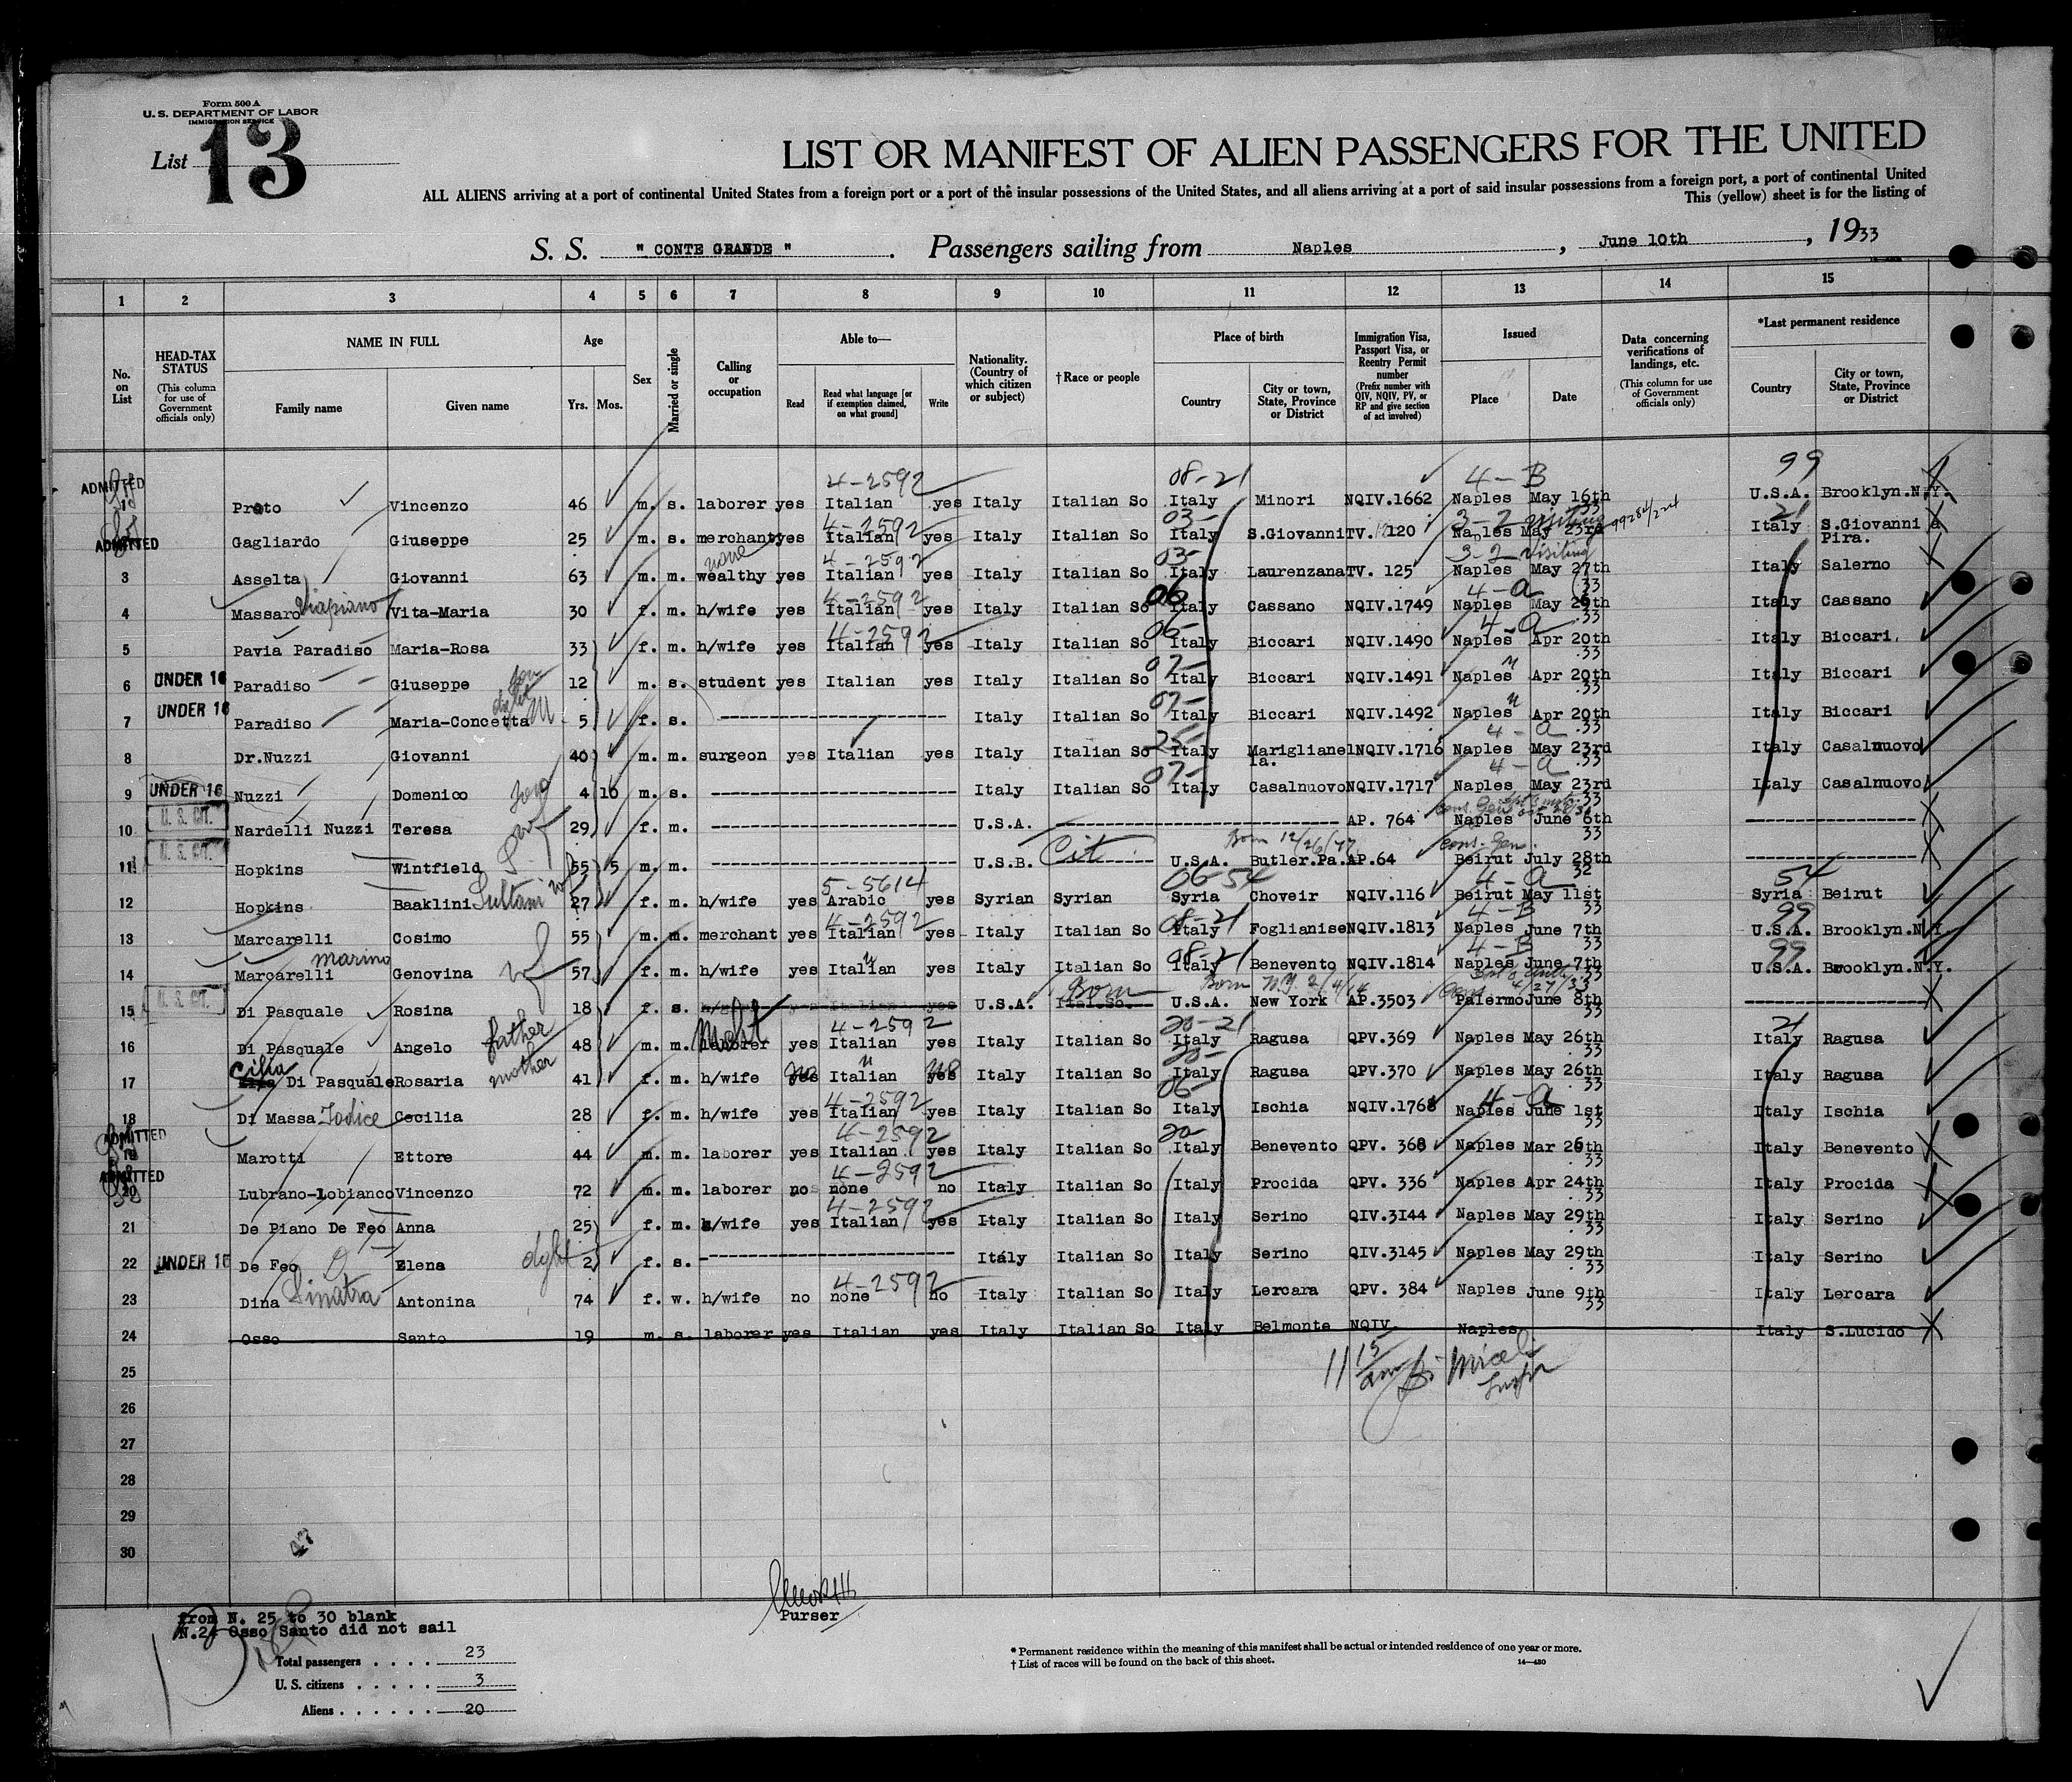 Form 500 A
U. S. DEPARTMENT OF LABOR
IMMIGRATION SERVICE
List 13
LIST OR MANIFEST OF ALIEN PASSENGERS FOR THE UNITED
ALL ALIENS arriving at a port of continental United States from a foreign port or a port of the insular possessions of the United States, and all aliens arriving at a port of said insular possessions from a foreign port, a port of continental United
This (yellow) sheet is for the listing of
S. S. " CONTE GRANDE " . Passengers sailing from Naples , June 10th , 1933
1 2 3 4 5 6 7 8 9 10 11 12 13 14 15
No. on List
HEAD-TAX STATUS (This column for use of Government officials only)
NAME IN FULL
Family name Given name
Age
Yrs. Mos.
Sex
Married or single
Calling or occupation
Able to—
Read Read what language [or if exemption claimed, on what ground] Write
Nationality. (Country of which citizen or subject)
†Race or people
Place of birth
Country City or town, State, Province or District
Immigration Visa, Passport Visa, or Reentry Permit number (Prefix number with QIV, NQIV, PV, or RP and give section of act involved)
Issued
Place Date
Data concerning verifications of landings, etc. (This column for use of Government officials only)
*Last permanent residence
Country City or town, State, Province or District
4-2592 08-21 4-B 99
ADMITTED Proto Vincenzo 46 m. s. laborer yes Italian yes Italy Italian So Italy Minori NQIV.1662 Naples May 16th 33 U.S.A. Brooklyn.N.Y.
4-2592 03- 3-2 visiting 21
ADMITTED Gagliardo Giuseppe 25 m. s. merchant yes Italian yes Italy Italian So Italy S.Giovanni TV. 120 Naples May 23rd Italy S.Giovanni a Pira.
none 4-2592 03- 3-2-visiting
3 Asselta Giovanni 63 m. m. wealthy yes Italian yes Italy Italian So Italy Laurenzana TV. 125 Naples May 27th 33 Italy Salerno
4-2592 06 4-a
4 Massaro Vita-Maria 30 f. m. h/wife yes Italian yes Italy Italian So Italy Cassano NQIV.1749 Naples May 26th .33 Italy Cassano
4-2592 06- 4-a
5 Pavia Paradiso Maria-Rosa 33 f. m. h/wife yes Italian yes Italy Italian So Italy Biccari NQIV.1490 Naples Apr 20th .33 Italy Biccari
son 07- "
6 UNDER 16 Paradiso Giuseppe 12 m. s. student yes Italian yes Italy Italian So Italy Biccari NQIV.1491 Naples Apr 20th .33 Italy Biccari
07- "
7 UNDER 16 Paradiso Maria-Concetta 5 f. s. Italy Italian So Italy Biccari NQIV.1492 Naples Apr 20th .33 Italy Biccari
25- 4-a
8 Dr.Nuzzi Giovanni 40 m. m. surgeon yes Italian yes Italy Italian So Italy Mariglianella. NQIV.1716 Naples May 23rd .33 Italy Casalnuovo
son 07- 4-a
9 UNDER 16 Nuzzi Domenico 4 10 m. s. Italy Italian So Italy Casalnuovo NQIV.1717 Naples May 23rd 33 Italy Casalnuovo
10 U. S. CIT. Nardelli Nuzzi Teresa wf 29 f. m. U.S.A. AP. 764 Naples June 6th 33
Born 12/26/77 Cons. Gen.
11 U. S. CIT. Hopkins Wintfield 55 5 m. m. U.S.B. Cit U.S.A. Butler.Pa. AP.64 Beirut July 28th 32
5-5614 06-54 4-a 54
12 Hopkins Baaklini Sultani 27 f. m. h/wife yes Arabic yes Syrian Syrian Syria Choveir NQIV.116 Beirut May 11st 33 Syria Beirut
4-2592 08-21 4-B 99
13 Marcarelli Cosimo 55 m. m. merchant yes Italian yes Italy Italian So Italy Foglianise NQIV.1813 Naples June 7th 33 U.S.A. Brooklyn.N.Y.
marino " 08-21 4-B 99
14 Marcarelli Genovina wf 57 f. m. h/wife yes Italian yes Italy Italian So Italy Benevento NQIV.1814 Naples June 7th 33 U.S.A. Brooklyn.N.Y.
Born Born N.Y. 2/4/14 4/27/33
15 U. S. CIT. Di Pasquale Rosina 18 f. s. Italian yes U.S.A. Ital.So. U.S.A. New York AP.3503 Palermo June 8th 33
father 4-2592 20-21 21
16 Di Pasquale Angelo 48 m. m. laborer yes Italian yes Italy Italian So Italy Ragusa QPV.369 Naples May 26th .33 Italy Ragusa
Cilia mother no " no 20-
17 Di Pasquale Rosaria 41 f. m. h/wife yes Italian yes Italy Italian So Italy Ragusa QPV.370 Naples May 26th .33 Italy Ragusa
4-2592 06- 4-a
18 Di Massa Iodice Cecilia 28 f. m. h/wife yes Italian yes Italy Italian So Italy Ischia NQIV.1768 Naples June 1st 33 Italy Ischia
4-2592 20
ADMITTED 19 Marotti Ettore 44 m. m. laborer yes Italian yes Italy Italian So Italy Benevento QPV. 368 Naples Mar 26th .33 Italy Benevento
4-2592
ADMITTED 20 Lubrano-Lobianco Vincenzo 72 m. m. laborer no none no Italy Italian So Italy Procida QPV. 336 Naples Apr 24th .33 Italy Procida
4-2592
21 De Piano De Feo Anna 25 f. m. h/wife yes Italian yes Italy Italian So Italy Serino QIV.3144 Naples May 29th .33 Italy Serino
22 UNDER 16 De Feo Elena dght 2 f. s. Italy Italian So Italy Serino QIV.3145 Naples May 29th .33 Italy Serino
4-2592
23 Dina Sinatra Antonina 74 f. w. h/wife no none no Italy Italian So Italy Lercara QPV. 384 Naples June 9th 33 Italy Lercara
24 Osso Santo 19 m. s. laborer yes Italian yes Italy Italian So Italy Belmonte NQIV Naples Italy S.Lucido
25
26
27
28
29
30
Purser
from N. 25 to 30 blank
N.24 Osso Santo did not sail
Total passengers . . . . 23
U. S. citizens . . . . . 3
Aliens . . . . . . 20
* Permanent residence within the meaning of this manifest shall be actual or intended residence of one year or more.
† List of races will be found on the back of this sheet. 14—430